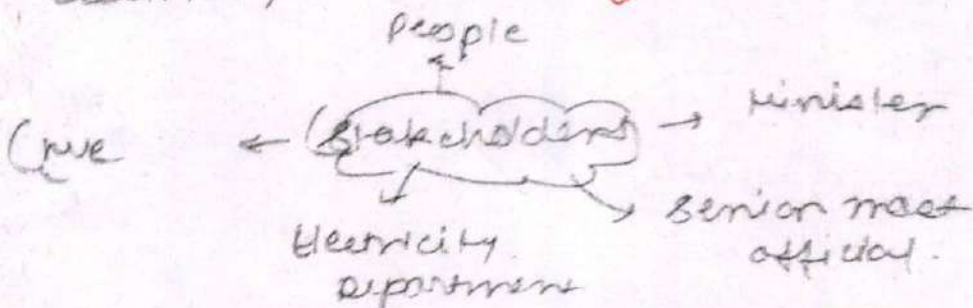 People
(me ← (Stakeholders) → Minister
Electricity
Department
Senior most
official.